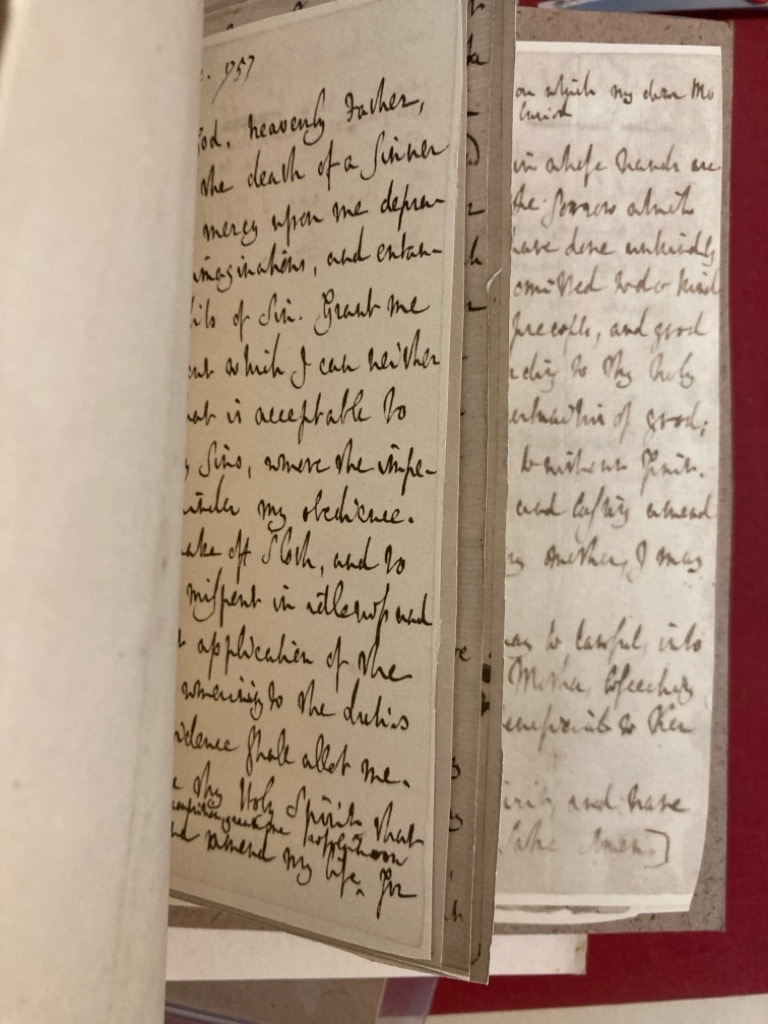 757
God. heavenly Father,
the death of a Sinner
mercy upon me deprav-
imaginations, and entan-
bits of Sin. Grant me
ent which I can neither
at is acceptable to
Sins, where the impe-
my obedience.
ake off Sloth, and to
mispent in idleness and
application of the
to the duties
idence shall allot me.
thy Holy Spirit that
amend my life. For
on which my dear Mo
buried
in whose hands are
the Sorrow
have done unkindly
omitted to do kind
precepts, and good
ding to thy holy
of good;
Spirit.
and amend
my mother, I may
as be lawful, into
Mother, beseeching
beneficial to her
and have
Sake Amen.]